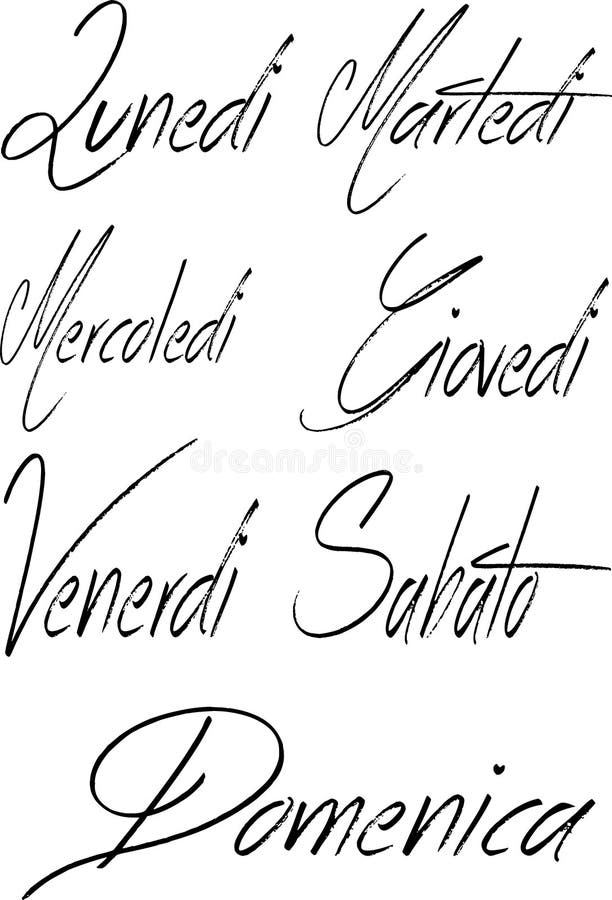 Lunedi Martedi
Mercoledi Giovedi
dreamstime.com
Venerdi Sabato
Domenica